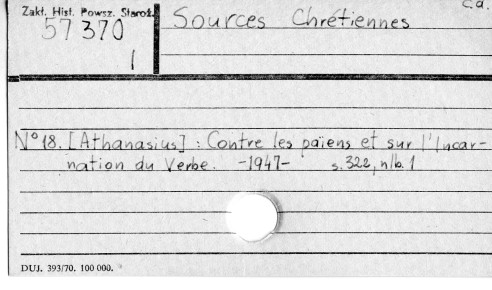 Zakł. Hist. Powsz. Staroż.
57370
1
Sources Chrétiennes
cd.
N° 18. [Athanasius] : Contre les païens et sur l'Incar-
nation du Verbe. -1947- s. 322, nlb. 1
DUJ. 393/70. 100 000.